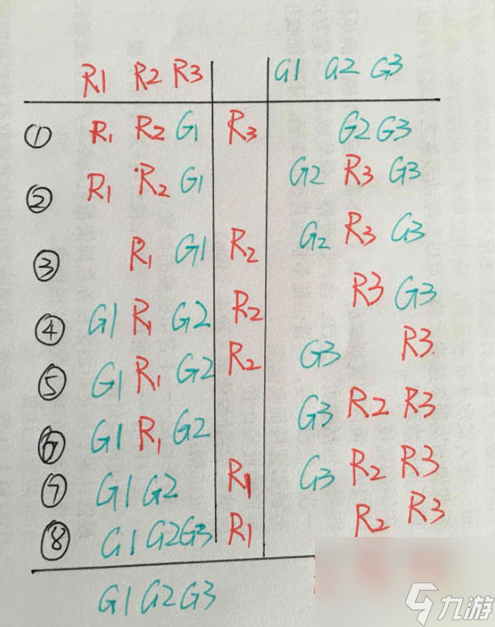 R1 R2 R3 G1 G2 G3
① R1 R2 G1 R3 G2 G3
② R1 R2 G1 G2 R3 G3
③ R1 G1 R2 G2 R3 G3
④ G1 R1 G2 R2 R3 G3
⑤ G1 R1 G2 R2 G3 R3
⑥ G1 R1 G2 G3 R2 R3
⑦ G1 G2 R1 G3 R2 R3
⑧ G1 G2 G3 R1 R2 R3
G1 G2 G3
九游